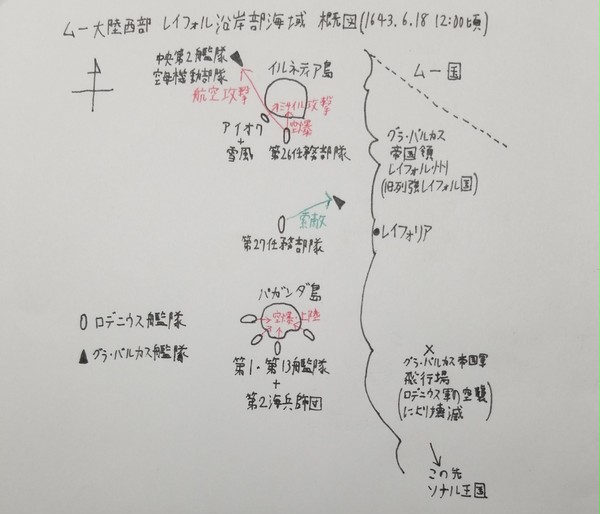 ムー大陸西部 レイフォル沿岸部海域 概略図(1643.6.18 12:00頃)
中央第2艦隊
空母機動部隊
航空攻撃
イルネティア島
ミサイル攻撃
空爆
アイオワ
+
雪風
第26任務部隊
ムー国
グラ・バルカス
帝国領
レイフォル州
(旧列強レイフォル国)
レイフォリア
索敵
第27任務部隊
パガンダ島
空爆・上陸
第1・第13艦隊
+
第2海兵師団
ロデニウス艦隊
グラ・バルカス艦隊
×
グラ・バルカス帝国軍
飛行場
(ロデニウス軍の空襲
により壊滅)
この先
ソナル王国